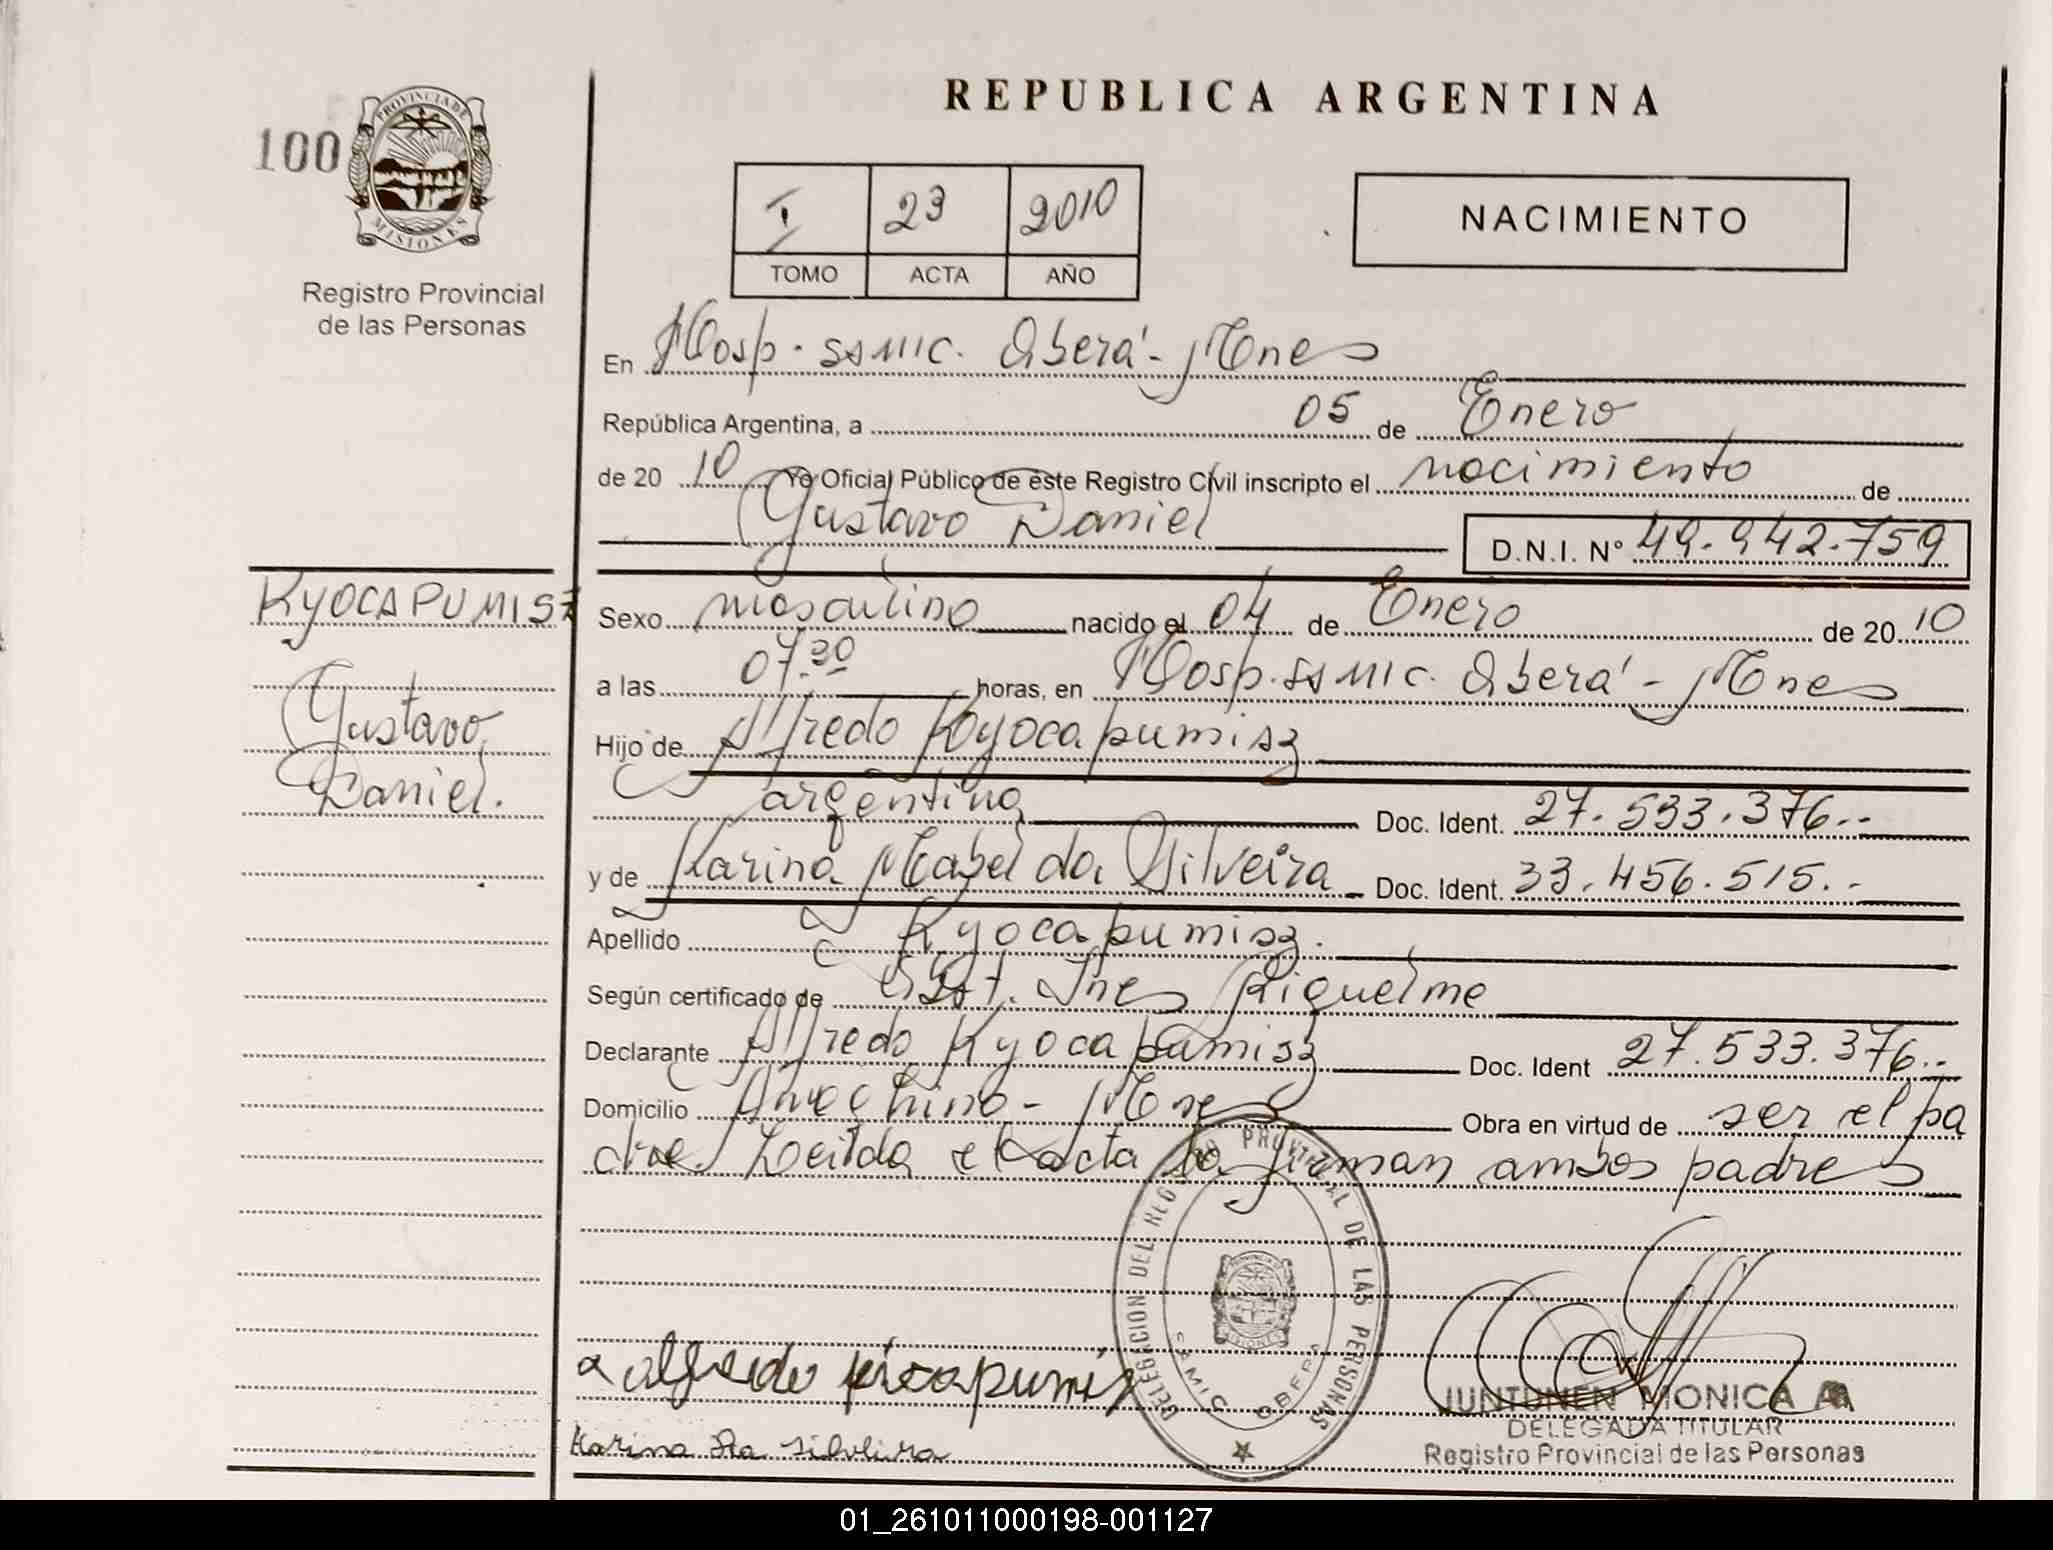 REPUBLICA ARGENTINA
100
PROVINCIA DE
MISIONES
Registro Provincial
de las Personas
I 23 2010
TOMO ACTA AÑO
NACIMIENTO
En Hosp. SAMIC. Oberá - Mnes
República Argentina, a 05 de Enero
de 20 10 Yo Oficial Público de este Registro Civil inscripto el nacimiento de
Gustavo Daniel D.N.I. Nº 49.942.759
KYOCAPUMISZ
Gustavo
Daniel.
Sexo masculino nacido el 04 de Enero de 20 10
a las 07.30 horas, en Hosp. SAMIC. Oberá - Mnes
Hijo de Alfredo Kyocapumisz
argentino Doc. Ident. 27.533.376.--
y de Karina Mabel da Silveira - Doc. Ident. 33.456.515.--
Apellido Kyocapumisz.
Según certificado de Obst. Ines Riquelme
Declarante Alfredo Kyocapumisz Doc. Ident 27.533.376.--
Domicilio - Mnes Obra en virtud de ser el pa
dre. Leida el acta la firman ambos padres
DELEGACION DEL REGISTRO PROVINCIAL DE LAS PERSONAS
SAMIC OBERA
alfredo kicapumis
Karina Da silveira
JUNTUNEN MONICA A
DELEGADA TITULAR
Registro Provincial de las Personas
01_261011000198-001127